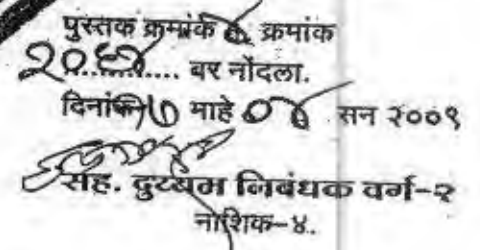 पुस्तक क्रमांक क्रमांक
............ वर नोंदला.
दिनांक माहे सन २००९
सह. दुय्यम निबंधक वर्ग-२
नाशिक-४.